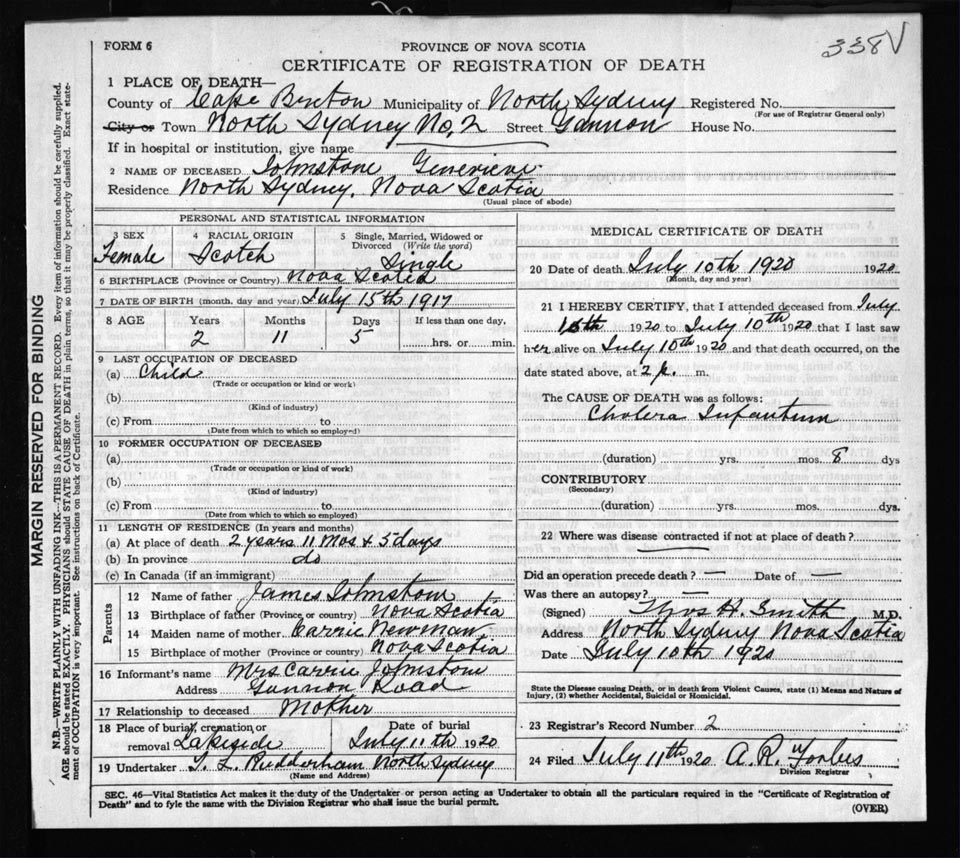 338 V
FORM 6
PROVINCE OF NOVA SCOTIA
CERTIFICATE OF REGISTRATION OF DEATH
1 PLACE OF DEATH—
County of Cape Breton Municipality of North Sydney Registered No.
(For use of Registrar General only)
City or Town North Sydney No, 2 Street Gannon House No.
If in hospital or institution, give name
2 NAME OF DECEASED Johnstone Genevieve
Residence North Sydney, Nova Scotia
(Usual place of abode)
MARGIN RESERVED FOR BINDING
N.B.—WRITE PLAINLY WITH UNFADING INK—THIS IS A PERMANENT RECORD. Every item of information should be carefully supplied.
AGE should be stated EXACTLY. PHYSICIANS should STATE CAUSE OF DEATH in plain terms, so that it may be properly classified. Exact state-
ment of OCCUPATION is very important. See instructions on back of Certificate.
PERSONAL AND STATISTICAL INFORMATION
3 SEX Female
4 RACIAL ORIGIN Scotch
5 Single, Married, Widowed or Divorced (Write the word) Single
6 BIRTHPLACE (Province or Country) Nova Scotia
7 DATE OF BIRTH (month, day and year) July 15th 1917
8 AGE Years Months Days If less than one day,
2 11 5 hrs. or min.
9 LAST OCCUPATION OF DECEASED
(a) Child
(Trade or occupation or kind or work)
(b)
(Kind of industry)
(c) From to
(Date from which to which so employed)
10 FORMER OCCUPATION OF DECEASED
(a)
(Trade or occupation or kind of work)
(b)
(Kind of industry)
(c) From to
(Date from which to which so employed)
11 LENGTH OF RESIDENCE (In years and months)
(a) At place of death 2 years 11 Mos + 5 days
(b) In province do
(c) In Canada (if an immigrant)
Parents
12 Name of father James Johnstone
13 Birthplace of father (Province or country) Nova Scotia
14 Maiden name of mother Carrie Newman
15 Birthplace of mother (Province or country) Nova Scotia
16 Informant's name Mrs Carrie Johnstone
Address Gannon Road
17 Relationship to deceased Mother
18 Place of burial, cremation or removal Lakeside
Date of burial July 11th 1920
19 Undertaker Rudderham North Sydney
(Name and Address)
MEDICAL CERTIFICATE OF DEATH
20 Date of death July 10th 1920 1920
(Month, day and year)
21 I HEREBY CERTIFY, that I attended deceased from July
10th 1920 to July 10th 1920 that I last saw
her alive on July 10th 1920 and that death occurred, on the
date stated above, at 2 p. m.
The CAUSE OF DEATH was as follows:
Cholera Infantum
(duration) yrs. mos. 8 dys
CONTRIBUTORY
(Secondary)
(duration) yrs. mos. dys.
22 Where was disease contracted if not at place of death?
Did an operation precede death? — Date of —
Was there an autopsy? —
(Signed) Thos H. Smith M.D.
Address North Sydney Nova Scotia
Date July 10th 1920
State the Disease causing Death, or in death from Violent Causes, state (1) Means and Nature of
Injury, (2) whether Accidental, Suicidal or Homicidal.
23 Registrar's Record Number 2
24 Filed July 11th 1920 A. R. Forbes
Division Registrar
SEC. 46—Vital Statistics Act makes it the duty of the Undertaker or person acting as Undertaker to obtain all the particulars required in the "Certificate of Registration of
Death" and to fyle the same with the Division Registrar who shall issue the burial permit.
(OVER)